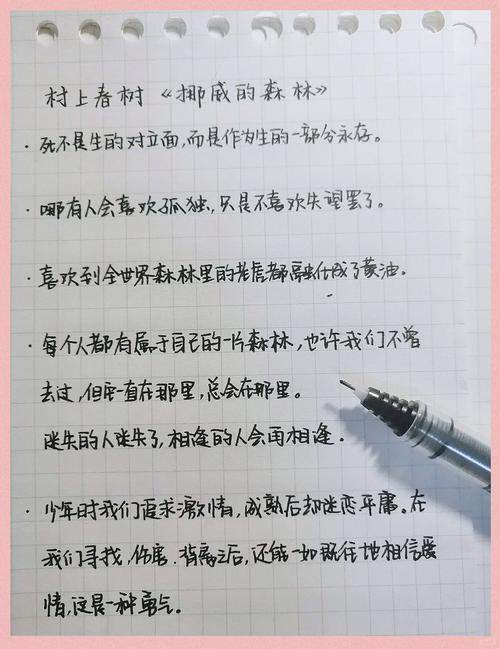 村上春树《挪威的森林》
· 死不是生的对立面,而是作为生的一部分永存。
· 哪有人会喜欢孤独,只是不喜欢失望罢了。
· 喜欢到全世界森林里的老虎都融化成了黄油。
· 每个人都有属于自己的一片森林,也许我们不曾
去过,但它一直在那里,总会在那里。
迷失的人迷失了,相逢的人会再相逢.
· 少年时我们追求激情,成熟后却迷恋平庸。在
我们寻找,伤害.背离之后,还能一如既往地相信爱
情,这是一种勇气。